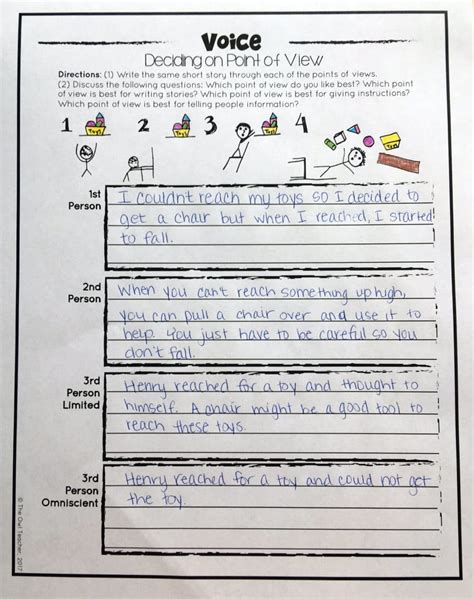 Voice
Deciding on Point of View
Directions: (1) Write the same short story through each of the points of views.
(2) Discuss the following questions: Which point of view do you like best? Which point
of view is best for writing stories? Which point of view is best for giving instructions?
Which point of view is best for telling people information?
1 2 3 4
1st
Person
I couldnt reach my toys so I decided to
get a chair but when I reached, I started
to fall.
2nd
Person
When you cant reach something up high,
you can pull a chair over and use it to
help. You just have to be careful so you
don't fall.
3rd
Person
Limited
Henry reached for a toy and thought to
himself. A chair might be a good tool to
reach these toys.
3rd
Person
Omniscient
Henry reached for a toy and could not get
the toy.
© The Owl Teacher, 2017